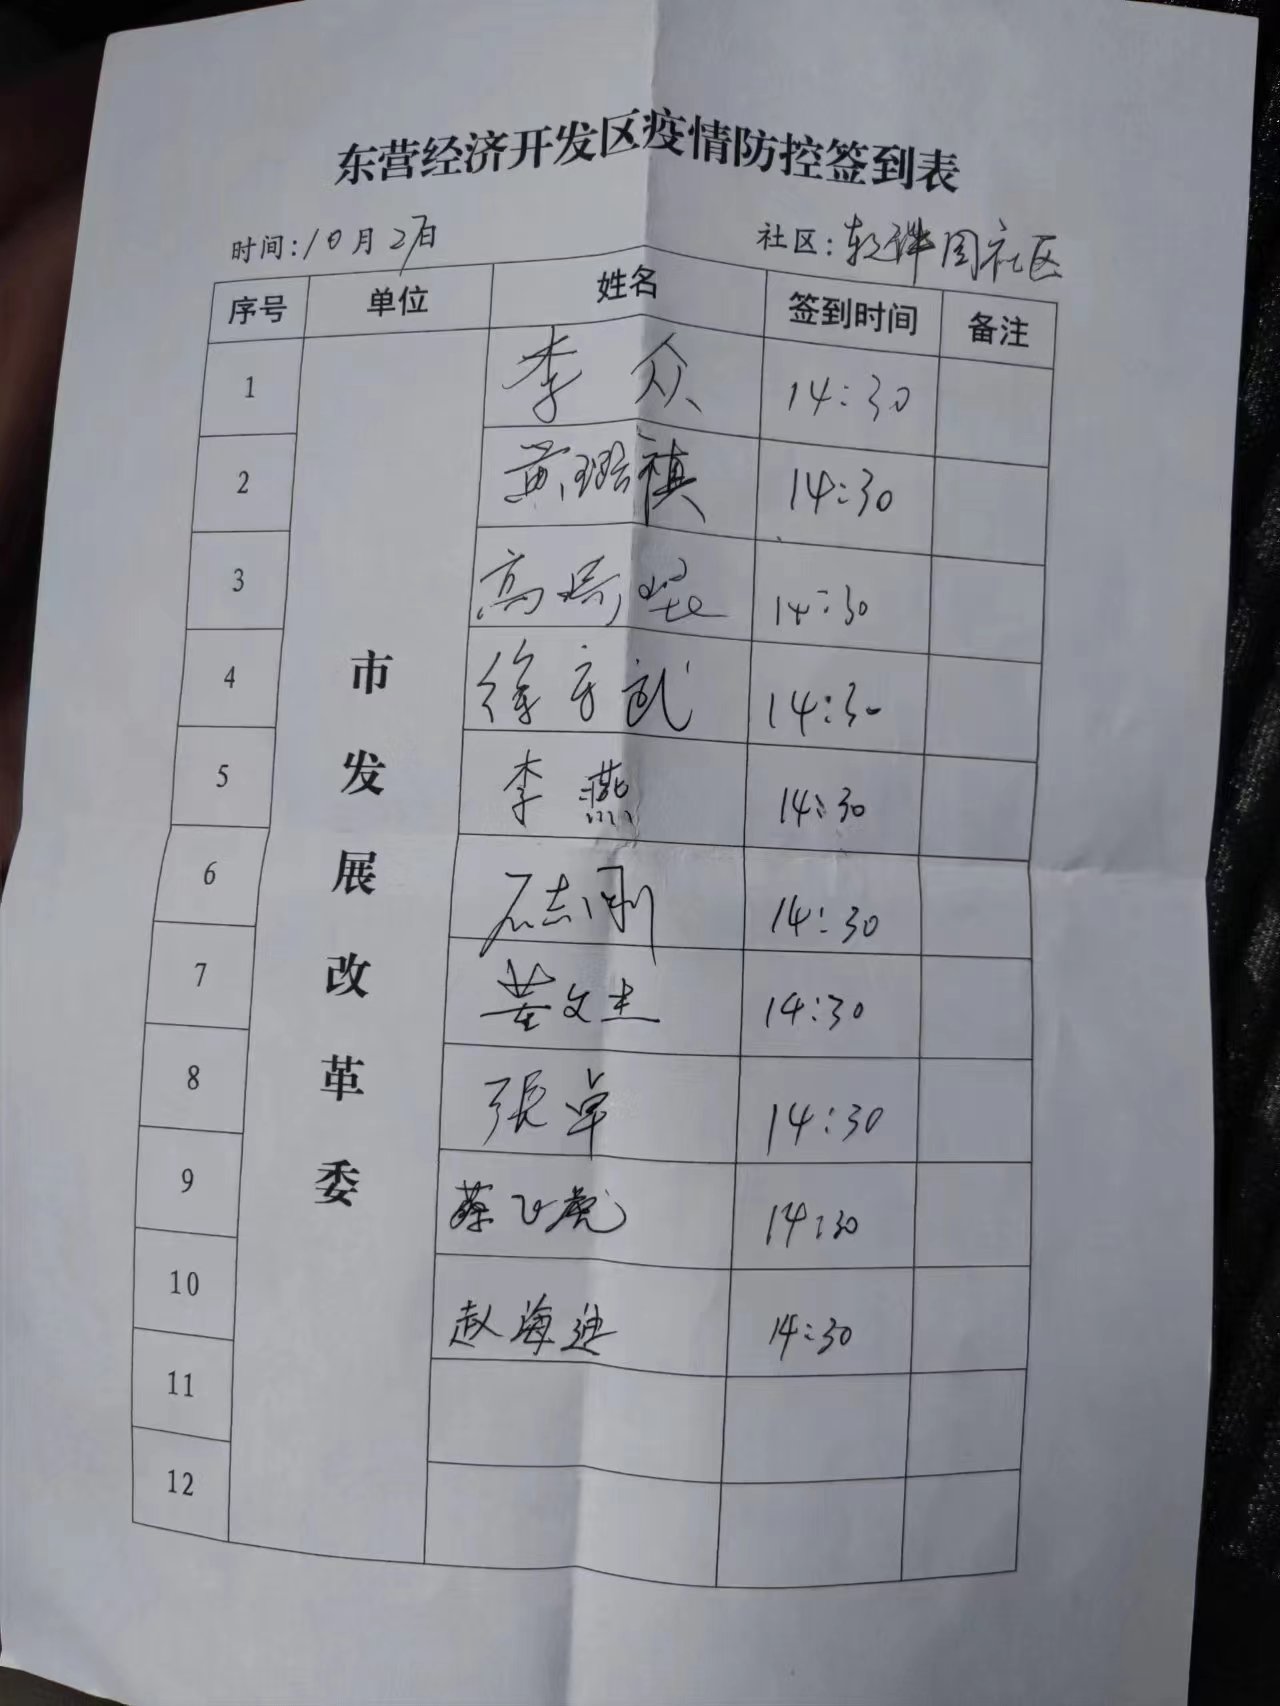 东营经济开发区疫情防控签到表
时间:10月27日 社区:软件园社区
序号 单位 姓名 签到时间 备注
市发展改革委
1 李众 14:30
2 黄璐祺 14:30
3 高 14:30
4 徐方武 14:30
5 李燕 14:30
6 石志刚 14:30
7 董文杰 14:30
8 張卓 14:30
9 蔡飞虎 14:30
10 赵海迪 14:30
11
12